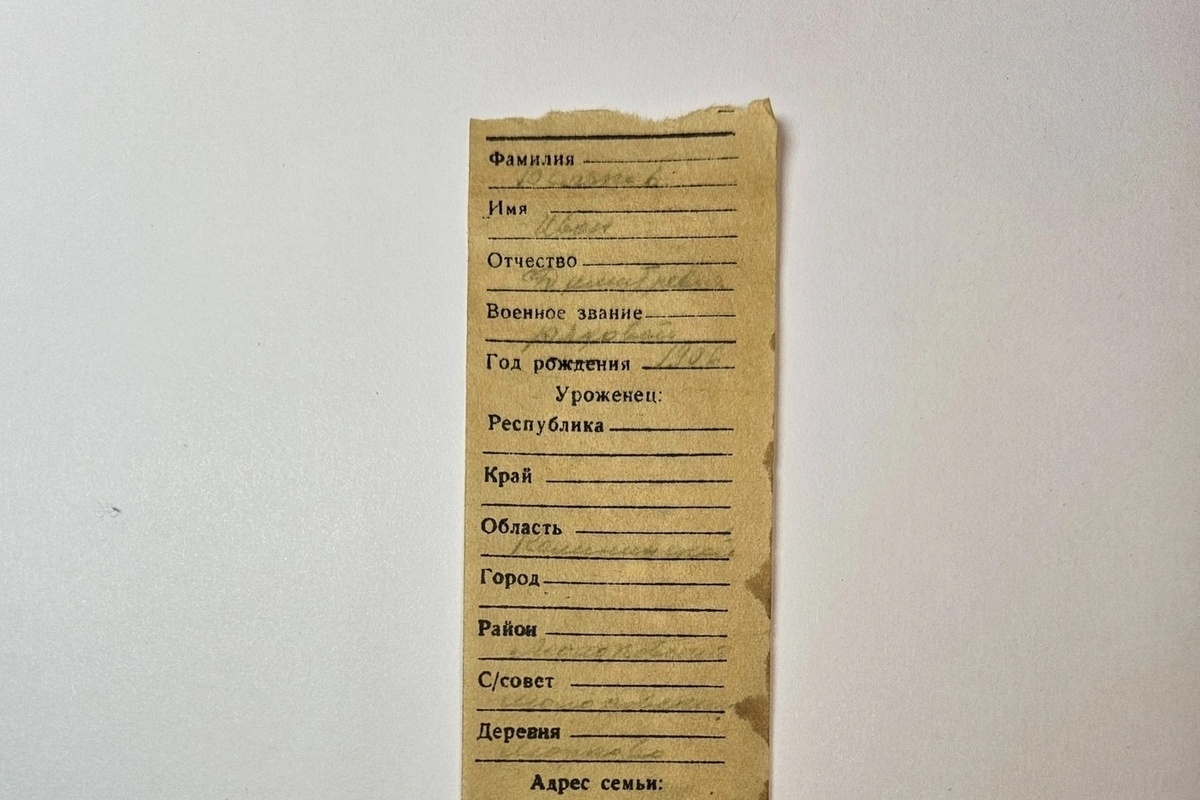 Фамилия
Имя
Иван
Отчество
Дмитриевич
Военное звание
рядовой
Год рождения 1906
Уроженец:
Республика
Край
Область
Калининская
Город
Район
С/совет
Деревня
Адрес семьи: